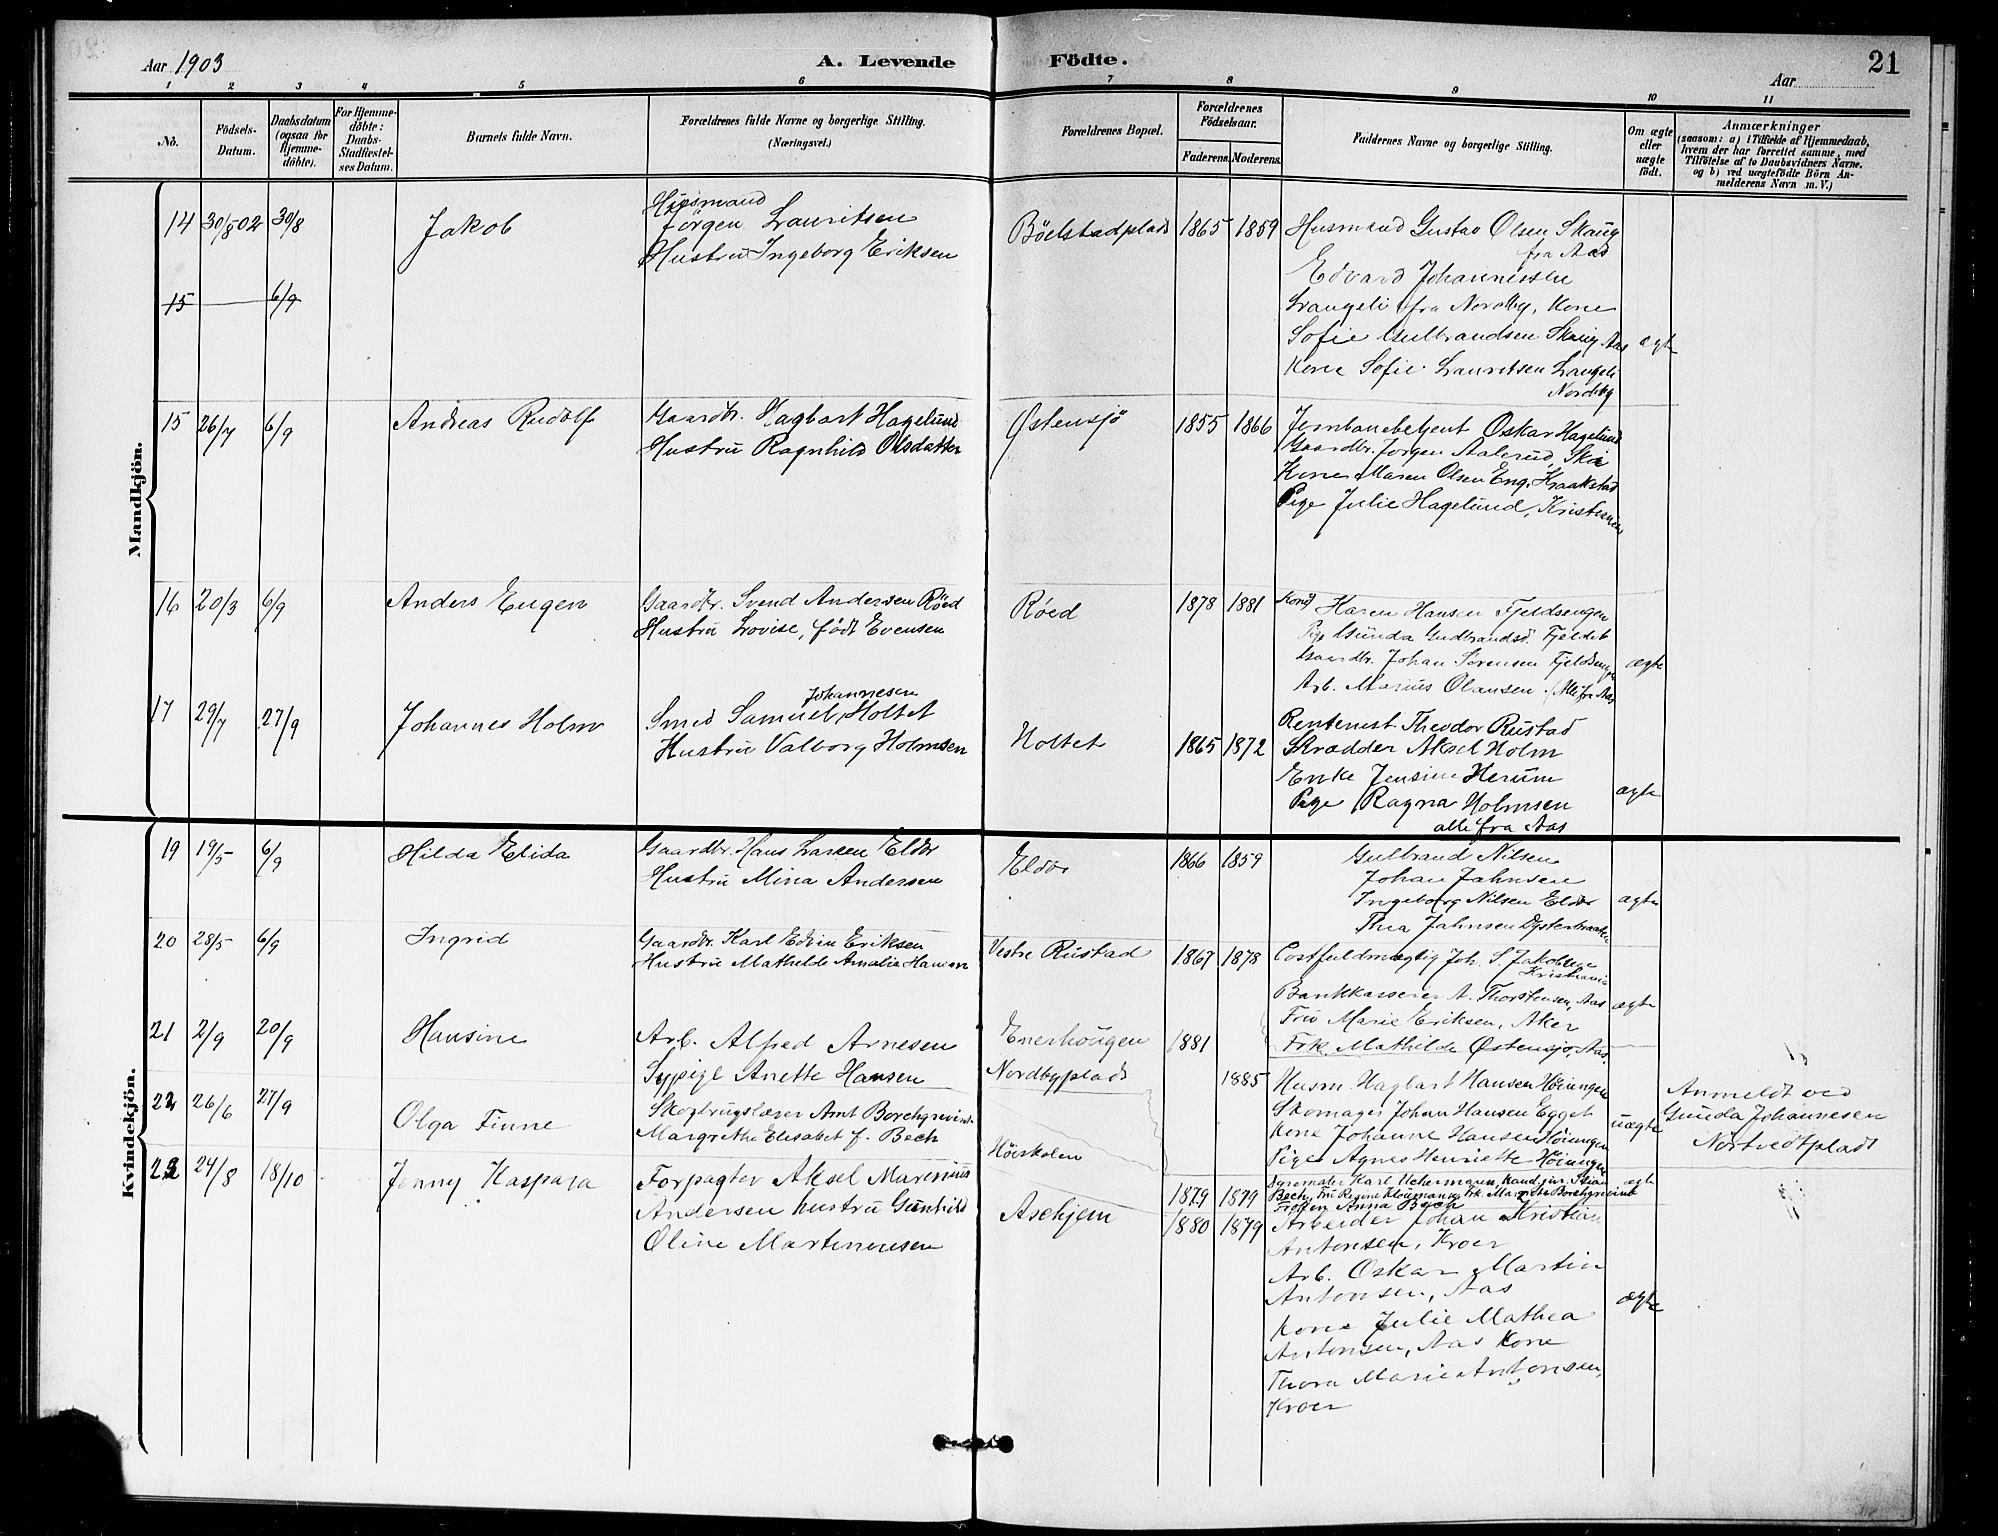 Aar 1903
A. Levende
Födte.
Aar
21
1 2 3 4 5 6 7 8 9 10 11
No.
Födsels-
Datum.
Daabsdatum
(ogsaa for
Hjemme-
döbte).
For Hjemme-
döbte:
Daabs-
Stadfæstel-
ses Datum.
Barnets fulde Navn.
Forældrenes fulde Navne og borgerlige Stilling.
(Næringsvei.)
Forældrenes Bopæl.
Forældrenes
Födselsaar.
Faderens. Moderens.
Faddernes Navne og borgerlige Stilling.
Om ægte
eller
uægte
födt.
Anmærkninger
(saasom: a) i Tilfælde af Hjemmedaab,
hvem der har forrettet samme, med
Tilföielse af to Daabsvidners Navne,
og b) ved uægtefödte Börn An-
melderens Navn m. V.)
Mandkjön.
14 30/8 02 30/8 Jakob
Husmand
Jörgen Lauritsen
Hustru Ingeborg Eriksen
Böelstadplads 1865 1859
Husmand Gustav Olsen Skaug
fra Aas
Edvard Johannessen
Langeli fra Nordby, Kone
Sofie Gulbrandsen Skaug Aas ægte
Kone Sofie Lauritsen Langeli
Nordby
15 6/9
15 26/7 6/9 Andreas Rudolf
Gaardbr. Hagbart Hagelund
Hustru Ragnhild Olsdatter
Østensjö 1855 1866
Jernbanebetjent Oskar Hagelund
Gaardbr. Jörgen Aalerud, Ski
Kone Maren Olsen Eng, Kraakstad
Pige Julie Hagelund, Kristiania
16 20/3 6/9 Anders Eugen
Gaardbr. Svend Andersen Röed
Hustru Lovise, födt Evensen
Röed 1878 1881
Kone Karen Hansen Fjeldsengen
Pige Gunda Gudbrandsd. Fjeldet
Gaardbr. Johan Sörensen Fjeldsengen ægte
Arb. Marius Olausen. (Alle fra Aas
17 29/7 27/9 Johannes Holm
Johannesen
Smed Samuel Holtet
Hustru Valborg Holmsen
Holtet 1865 1872
Rentenist Theodor Rustad
Skrædder Aksel Holm
Enke Jensine Herum
Pige Ragna Holmsen ægte
alle fra Aas
Kvindekjön.
19 19/5 6/9 Hilda Elida
Gaardbr. Hans Larsen Eldor
Hustru Mina Andersen
Eldor 1866 1859
Gulbrand Nilsen
Johan Jahnsen
Ingeborg Nilsen Eldor ægte
Thea Jahnsen Dysterbraaten
20 28/5 6/9 Ingrid
Gaardbr. Karl Edvin Eriksen
Hustru Mathilde Amalia Hansen
Vestre Rustad 1867 1878
Postfuldmægtig Joh. S. Jakobsen
Kristiania
Bankkasserer A. Thorstensen, Aas ægte
Fru Marie Eriksen, Aker
Frk. Mathilde Østensjo, Aas
21 2/9 20/9 Hansine
Arb. Alfred Arnesen
Sypige Anette Hansen
Enerhougen
Nordbyplads
1881
1885
Husm. Hagbart Hansen Höiungen
Skomager Johan Hansen Egget
Kone Johanne Hansen Höiungen uægte
Pige Agnes Henriette Höiungen
Anmeldt ved
Gunda Johannesen
Nörtvedtplads
22 26/6 27/9 Olga Finne
Skogbrugslærer Arnt Borchgrevink
Margrethe Elisabet f. Bech
Höiskolen 1879 1879
Dyremaler Karl Uchermann, Kand. jur. Stian ægte
Bech, Fru Regine Kloumann, Frk. Margrethe Borchgrevink
Fröken Anna Bech
23 24/8 18/10 Jenny Kaspara
Forpagter Aksel Marenius
Andersen hustru Gunhild
Oline Martinusen
Aschjem 1880 1879
Arbeider Johan Kristian
Antonsen, Kroer
Arb. Oskar Martin
Antonsen, Aas ægte
Kone Julie Mathea
Antonsen, Aas Kone
Thora Marie Antonsen,
Kroer